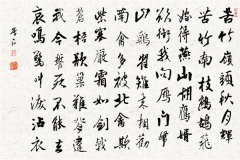 苦竹嶺頭秋月輝
苦竹南枝鷓鴣飛
嫁得燕山胡雁婿
欲銜我向雁門歸
山鷄翟雉來相勸
南禽多被北禽欺
紫塞嚴霜如劍戟
蒼梧欲巢難背違
我今誓死不能去
哀鳴驚叫淚沾衣